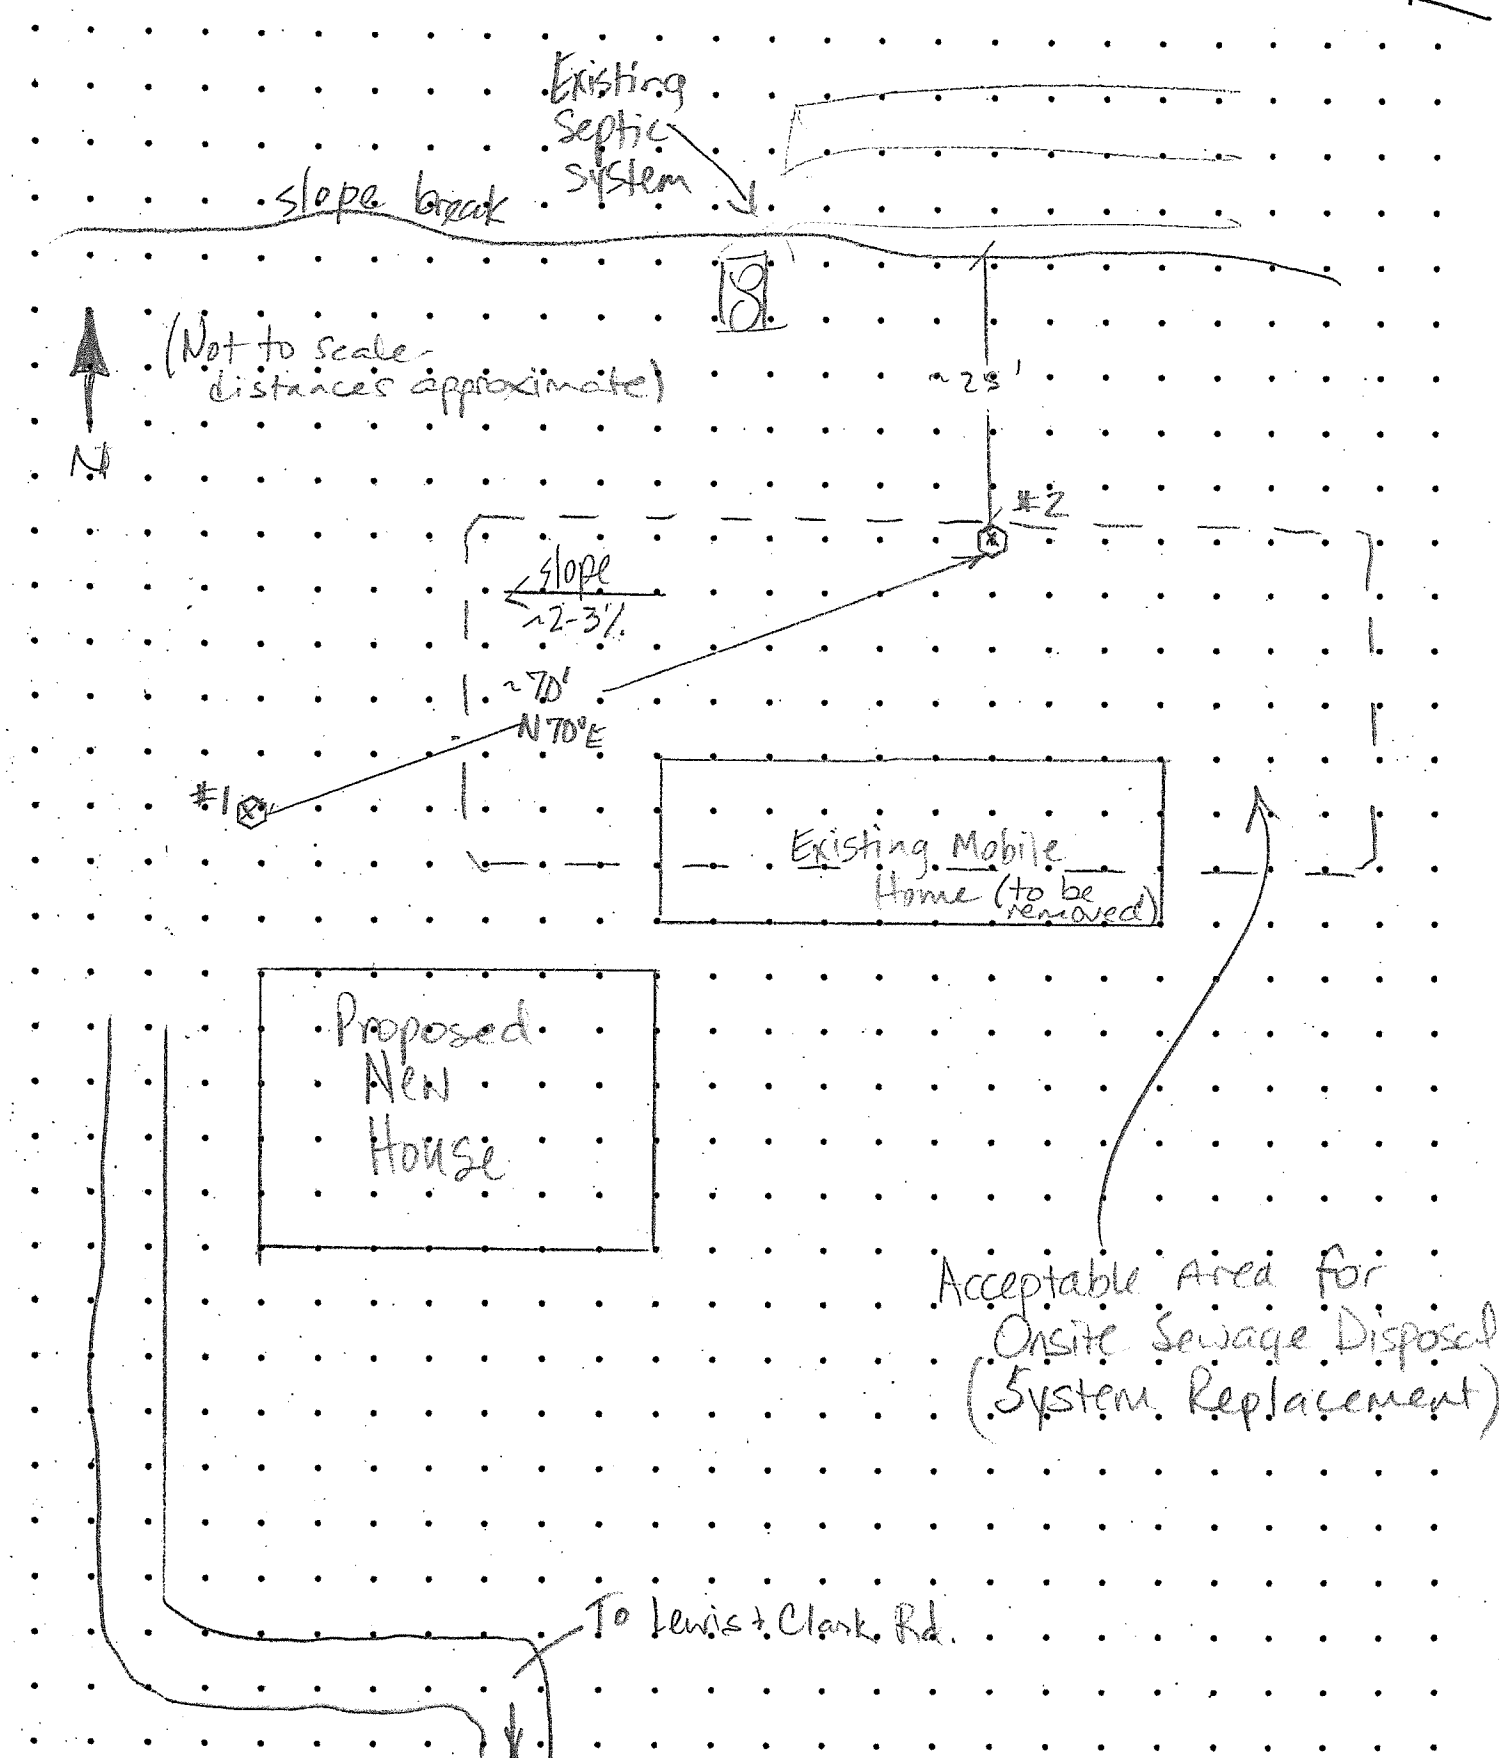 Existing
Septic
System
slope break
(Not to scale-
distances approximate)
N
~25'
#2
slope
~2-3%
~70'
N70°E
#1
Existing Mobile
Home (to be
removed)
Proposed
New
House
Acceptable Area for
Onsite Sewage Disposal
(System Replacement)
To Lewis & Clark Rd.